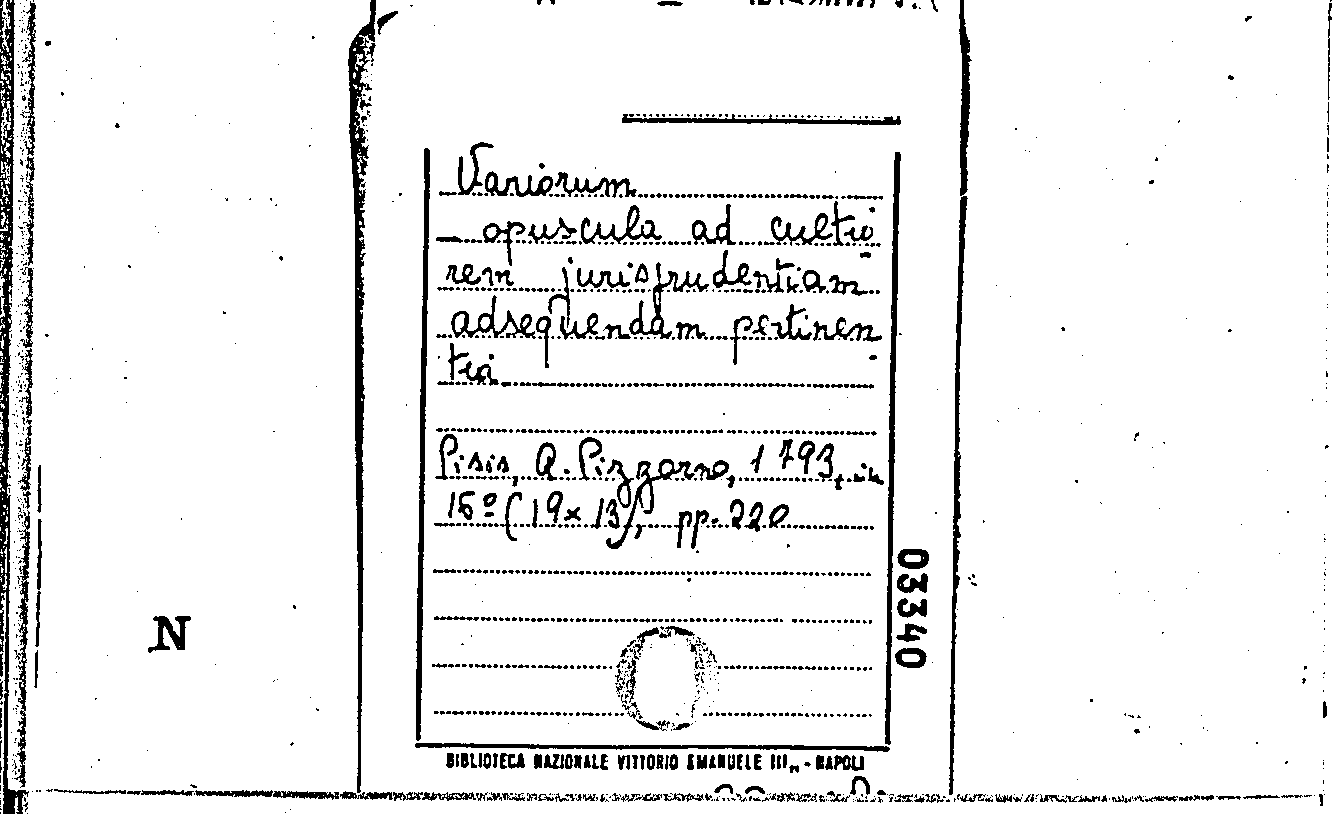 Variorum
_ opuscula ad cultio
rem jurisprudentiam
adsequendam pertinen
tia.
Pisis, A. Pizzorno, 1793,
16º (19x13), pp. 220
03340
N
BIBLIOTECA NAZIONALE VITTORIO EMANUELE III,, - NAPOLI